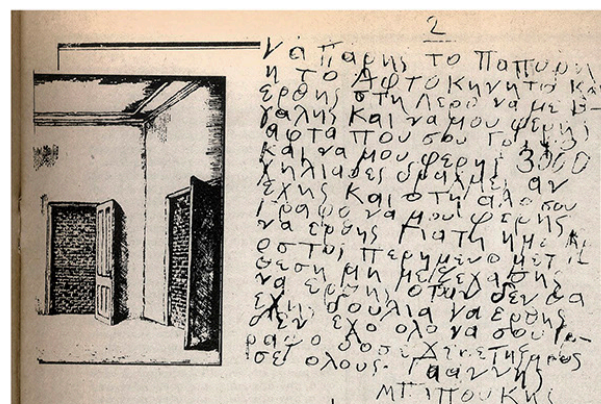 2
να παρης το παπορι
η το Αφτοκηνητο κα
ερθης στη Λερο να με β-
γαλης και να μου φερης
αφτα που σου γο
και να μου φερης 3000
χηλιαδες δραχμες αν
εχης και στη αλο σου
γραφο να μου φερης
να ερθης γιατη ημε
οστος περημενο με τι
θεση μη με ξεχασης
να ερθης οταν δεν θα
εχης δουλια να ερθης
δεν εχο ολο να σου γ-
ραψο δοσε χερετησμους
σε ολους. Γιαννης
ΜΠΙΠΟΥΚΗς